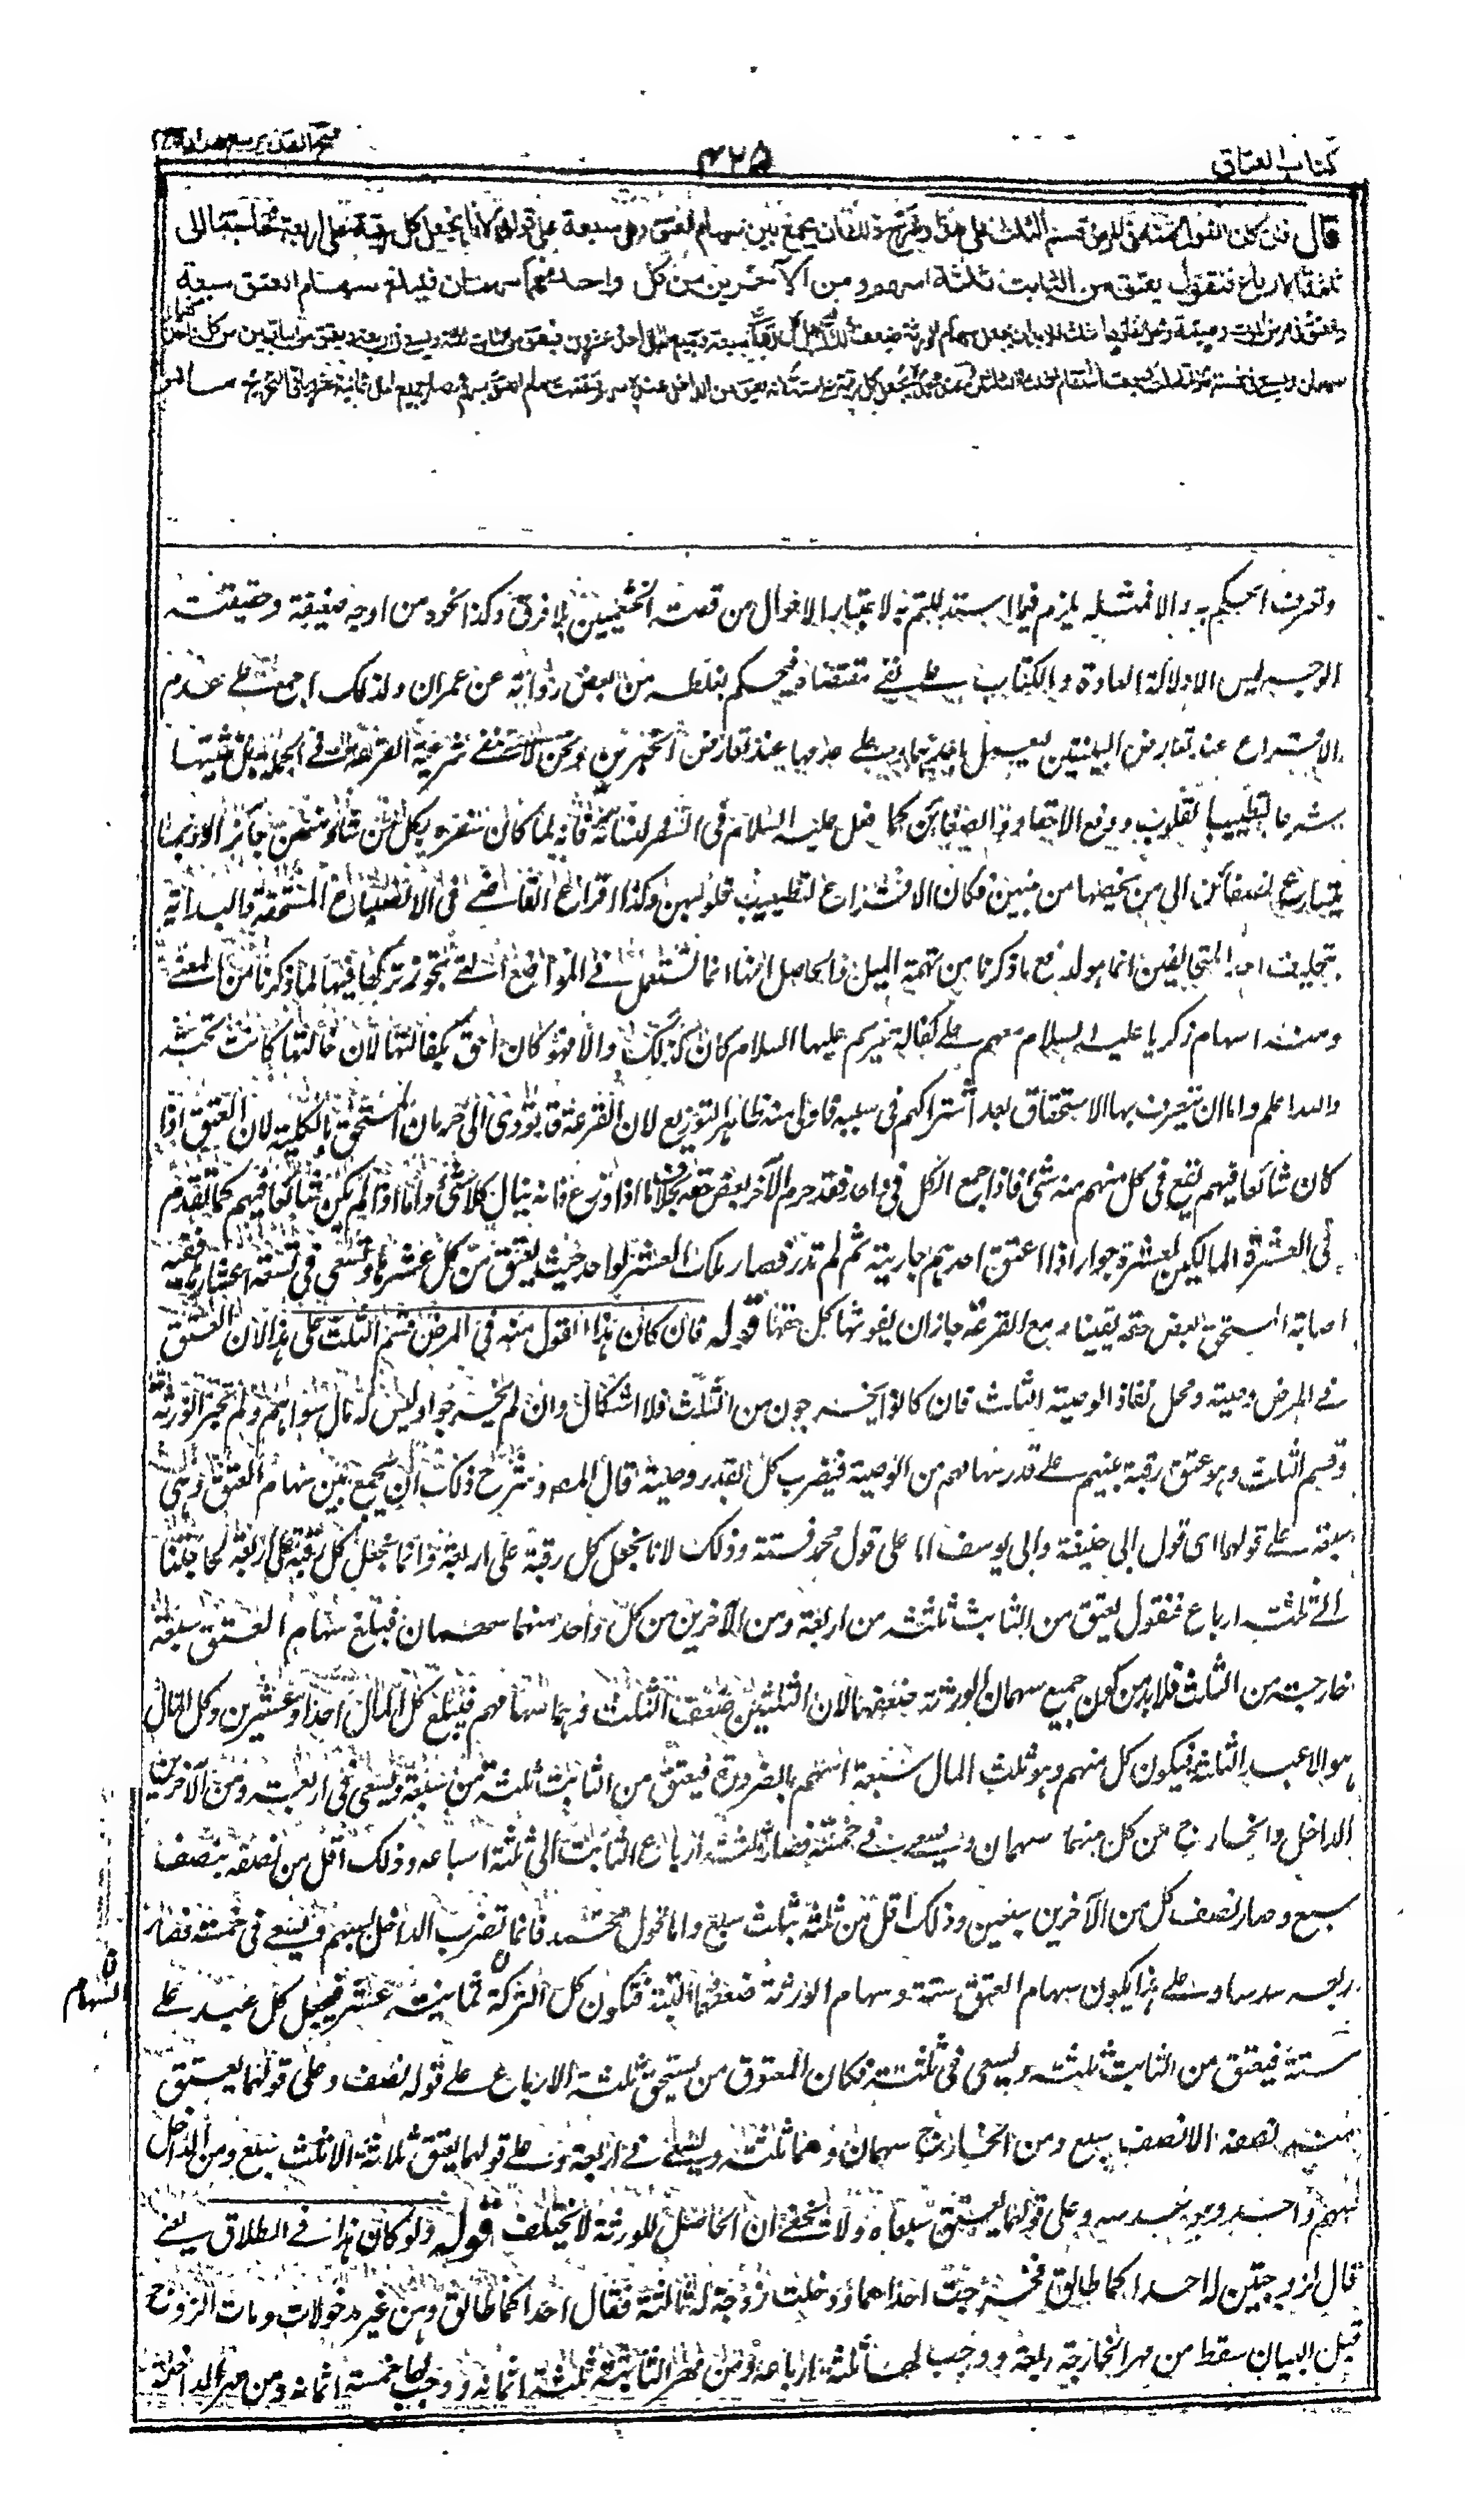 كتاب العتاق
٤٢٥
قال فان كان القول منه فى المرض قسم الثلث على هذا وشرح ذلك ان يجمع بين سهام العتق وهى سبعة على قولهما لانا نجعل كل رقبة على اربعة لحاجتنا الى
ثلثة الارباع فنقول يعتق من الثابت ثلثة اسهم ومن الآخرين من كل واحد منهما سهمان فيبلغ سهام العتق سبعة
والعتق فى مرض الموت وصية ومحل نفاذها الثلث فلا بد ان يجعل سهام الورثة ضعف ذلك فيجعل كل رقبة على سبعة وجميع المال احد وعشرون فيعتق من الثابت ثلثة ويسعى فى اربعة ويعتق من الباقيين من كل واحد
سهمان ويسعى فى خمسة
وتعرف الحكم به والا فمثله يلزم فيما استدللتم به لاعتبار الاقوال من قصة الخثعميين بلا فرق وكذا نحوه من اوجه ضعيفة وحقيقة
الوجه ليس الا دلالة العادة والكتاب على نفى مقتضاه فيحكم بغلطه من بعض رواته عن عمران ولذلك اجمع على عدم
الاقتراع عند تعارض البينتين ليعمل باحدهما وعلى عدمها عند تعارض الخبرين ونحن لا ننفى شرعية القرعة فى الجملة بل نثبتها
شرعا لتطييب القلوب ودفع الاحقاد والضغائن كما فعل عليه السلام فى السفر بنسائه فانه لما كان سفره بكل من شاء منهن جائزا الا انه ربما
يتسارع الضغائن الى من يخصها من بينهن فكان الاقتراع لتطييب قلوبهن وكذا اقراع القاضى فى الانصباء المستحقة والبداية
بتحليف احد المتحالفين انما هو لدفع ما ذكرنا من تهمة الميل فالحاصل انها انما تستعمل فى المواضع التى يجوز تركها فيها لما ذكرنا من المعنى
ومنه استهام زكريا عليه السلام معهم على كفالة مريم عليها السلام كان كذلك والا فهو كان احق بكفالتها لان خالتها كانت تحته
والله اعلم واما ان يتعرف بها الاستحقاق بعد اشتراكهم فى سببه فاولى منه ظاهر التوزيع لان القرعة قد تؤدى الى حرمان المستحق بالكلية لان العتق اذا
كان شائعا فيهم يقع فى كل منهم منه شئ فاذا جمع الكل فى واحد فقد حرم الآخر بعض حقه بخلاف ما اذا وزع فانه ينال كلا شئ واما اذا لم يكن شائعا فيهم كما تقدم
فى العشرة المالكين لعشرة جوار اذا اعتق احدهم جاريته ثم لم تدر فصار ملكت العشر لواحد حيث يعتق من كل عشرها وتسعى فى تسعة اعشارها ففيه
اصابة المستحق بعض حقه يقينا ومع القرعة جاز ان يفوتها كل حقها قوله فان كان هذا القول منه فى المرض قسم الثلث على هذا لان العتق
فى المرض وصية ومحل نفاذ الوصية الثلث فان كانوا يخرجون من الثلث فلا اشكال وان لم يخرجوا وليس له مال سواهم ولم تجز الورثة
وقسم الثلث وهو عتق رقبة بينهم على قدر سهامهم من الوصية فيضرب كل بقدر وصيته قال المصـ وشرح ذلك ان يجمع بين سهام العتق وهى
سبعة على قولهما اى قول ابى حنيفة وابى يوسف اما على قول محمد فستة وذلك لانا نجعل كل رقبة على اربعة وانما نجعل كل رقبة على اربعة لحاجتنا
الى ثلثة ارباع فنقول يعتق من الثابت ثلثة من اربعة ومن الآخرين من كل واحد منهما سهمان فبلغ سهام العتق سبعة
خارجة من الثلث فلا بد من كون جميع سهمان الورثة ضعفها لان الثلثين ضعف الثلث وهما سهامهم فيبلغ كل المال احدا وعشرين وكل المال
هو الاعبد الثلثة فيكون كل منهم وهو ثلث المال سبعة اسهم بالضرورة فيعتق من الثابت ثلثة من سبعة ويسعى فى اربعة ومن الآخرين
الداخل والخارج من كل منهما سهمان ويسعى فى خمسة فصار ثلثة ارباع الثابت الى ثلثة اسباعه وذلك اقل من نصفه بنصف
سبع وصار نصف كل من الآخرين سبعين وذلك اقل من ثلثه بثلث سبع واما قول محمد فانما نضرب الداخل بسهم ويسعى فى خمسة فصار
ربعه سدسا وعلى هذا يكون سهام العتق ستة وسهام الورثة ضعفها البتة فتكون كل التركة ثمانية عشر فيجعل كل عبد على
السهام
ستة فيعتق من الثابت ثلثة ويسعى فى ثلثة فكان المعتوق من يستحق ثلثة الارباع على قوله نصف وعلى قولهما يعتق
منه نصفه الا نصف سبع ومن الخارج سهمان وهما ثلثه ويسعى فى اربعة وعلى قولهما يعتق ثلاثة الا ثلث سبع ومن الداخل
سهم واحد وهو سدسه وعلى قولهما يعتق سبعاه ولا يخفى ان الحاصل للورثة لا يختلف قوله ولو كان هذا فى الطلاق يعنى
قال لزوجتين له احداكما طالق فخرجت احداهما ودخلت زوجة له ثالثة فقال احداكما طالق وهن غير مدخولات ومات الزوج
قبل البيان سقط من مهر الخارجة ربعه ووجب لها ثلثة ارباعه ومن مهر الثابتة ثلثة اثمانه ووجب لها خمسة اثمانه ومن مهر الداخلة